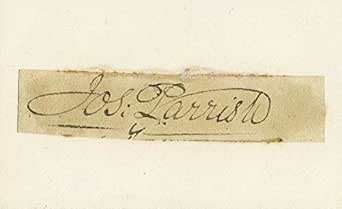 Jos: Parrish